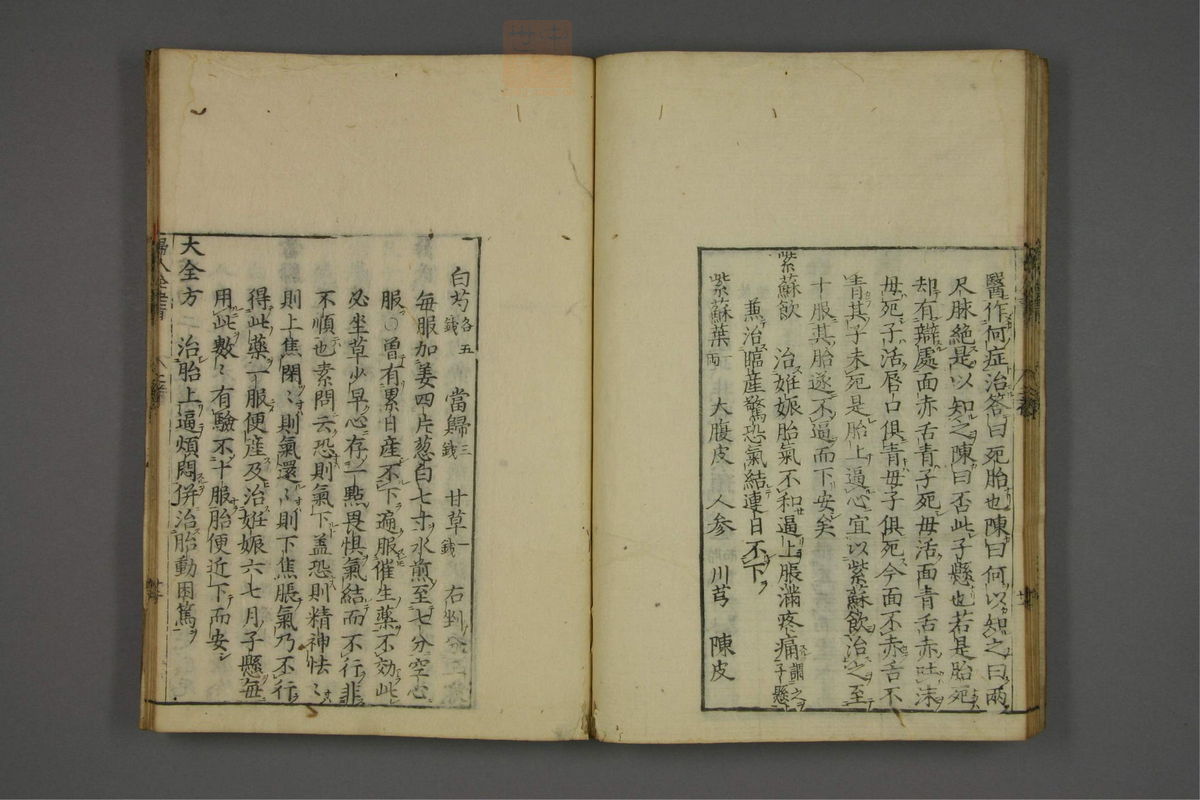 醫作何症治答曰死胎也陳曰何以知之曰兩
尺脉絶是以知之陳曰否此子懸也若是胎死
却有辯處面赤舌青子死母活面青舌赤吐沫
母死子活唇口俱青母子俱死今面不赤舌不
青其子未死是胎上逼心宜以紫蘇飲治之至
十服其胎遂不逼而下安矣
紫蘇飲 治姙娠胎氣不和逼上脹滿疼痛謂之子懸
兼治臨産驚恐氣結連日不下
紫蘇葉 一兩 大腹皮 人参 川芎 陳皮
白芍 各五錢 當歸 三錢 甘草 一錢 右剉分
每服加姜四片葱白七寸水煎至七分空心
服○曽有累日産不下遍服催生藥不効此
必坐草少早心存一點畏惧氣結而不行非
不順也素問云恐則氣下盖恐則精神怯〻
則上焦閉〻則氣還〻則下焦脹氣乃不行
得此藥一服便産及治姙娠六七月子懸每
用此數〻有驗不十服胎便近下而安
大全方 治胎上逼煩悶併治胎動困篤